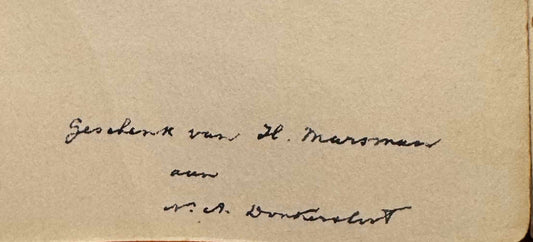 Geschenk van H. Marsman
aan
N. A. Donkersloot